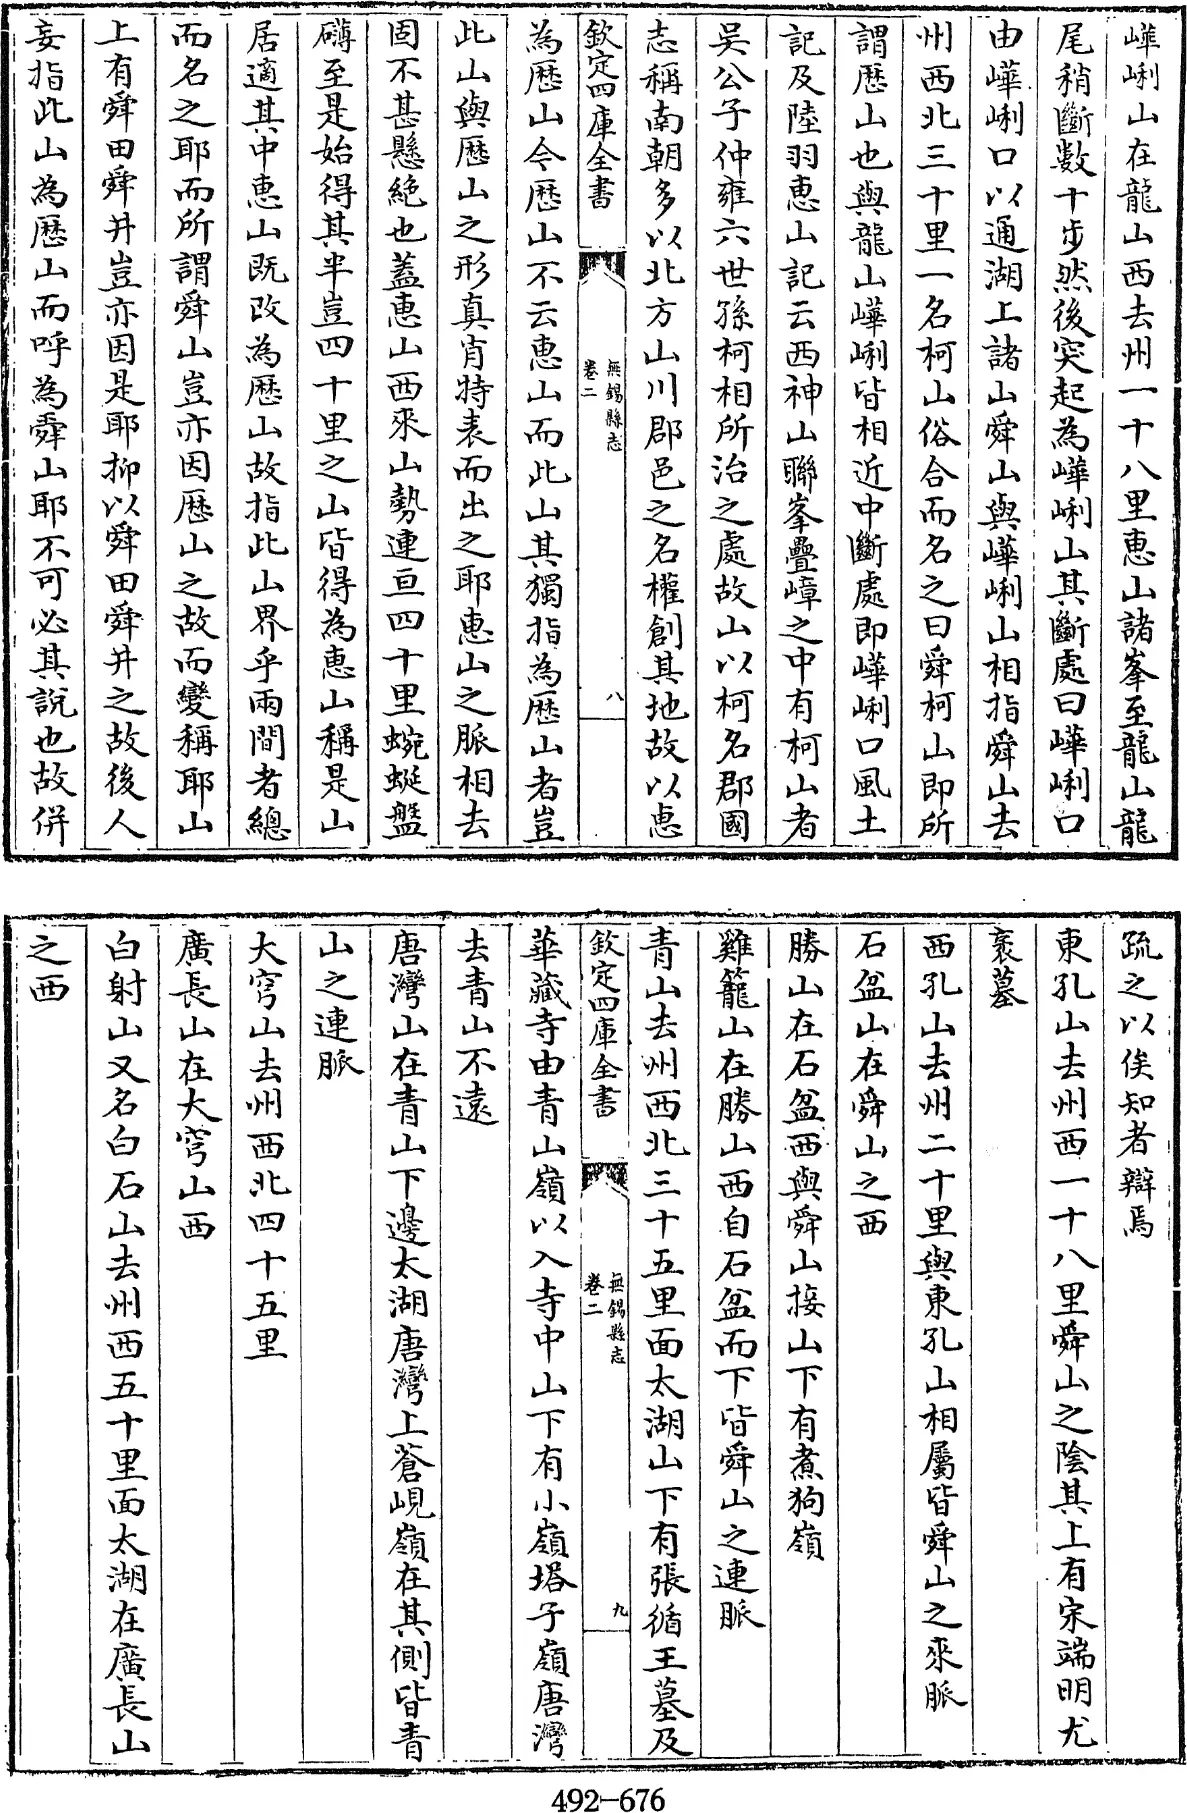 嶫峢山在龍山西去州一十八里惠山諸峯至龍山龍
尾稍斷數十步然後突起為嶫峢山其斷處曰嶫峢口
由嶫峢口以通湖上諸山舜山與嶫峢山相指舜山去
州西北三十里一名柯山俗合而名之曰舜柯山即所
謂歴山也與龍山嶫峢皆相近中斷處即嶫峢口風土
記及陸羽惠山記云西神山聯峯疊嶂之中有柯山者
吳公子仲雍六世孫柯相所治之處故山以柯名郡國
志稱南朝多以北方山川郡邑之名權創其地故以惠
欽定四庫全書
無錫縣志
卷二
八
為歴山今歴山不云惠山而此山其獨指為歴山者豈
此山與歴山之形真肖特表而出之耶惠山之脈相去
固不甚懸絶也蓋惠山西來山勢連亘四十里蜿蜒盤
礴至是始得其半豈四十里之山皆得為惠山稱是山
居適其中惠山既改為歴山故指此山界乎兩間者總
而名之耶而所謂舜山豈亦因歴山之故而變稱耶山
上有舜田舜井豈亦因是耶抑以舜田舜井之故後人
妄指此山為歴山而呼為舜山耶不可必其說也故併
疏之以俟知者辯焉
東孔山去州西一十八里舜山之陰其上有宋端明尤
袤墓
西孔山去州二十里與東孔山相屬皆舜山之來脈
石盆山在舜山之西
勝山在石盆西與舜山接山下有煮狗嶺
雞籠山在勝山西自石盆而下皆舜山之連脈
青山去州西北三十五里面太湖山下有張循王墓及
欽定四庫全書
無錫縣志
卷二
九
華藏寺由青山嶺以入寺中山下有小嶺塔子嶺唐灣
去青山不遠
唐灣山在青山下邊太湖唐灣上蒼峴嶺在其側皆青
山之連脈
大穹山去州西北四十五里
廣長山在大穹山西
白射山又名白石山去州西五十里面太湖在廣長山
之西
492-676